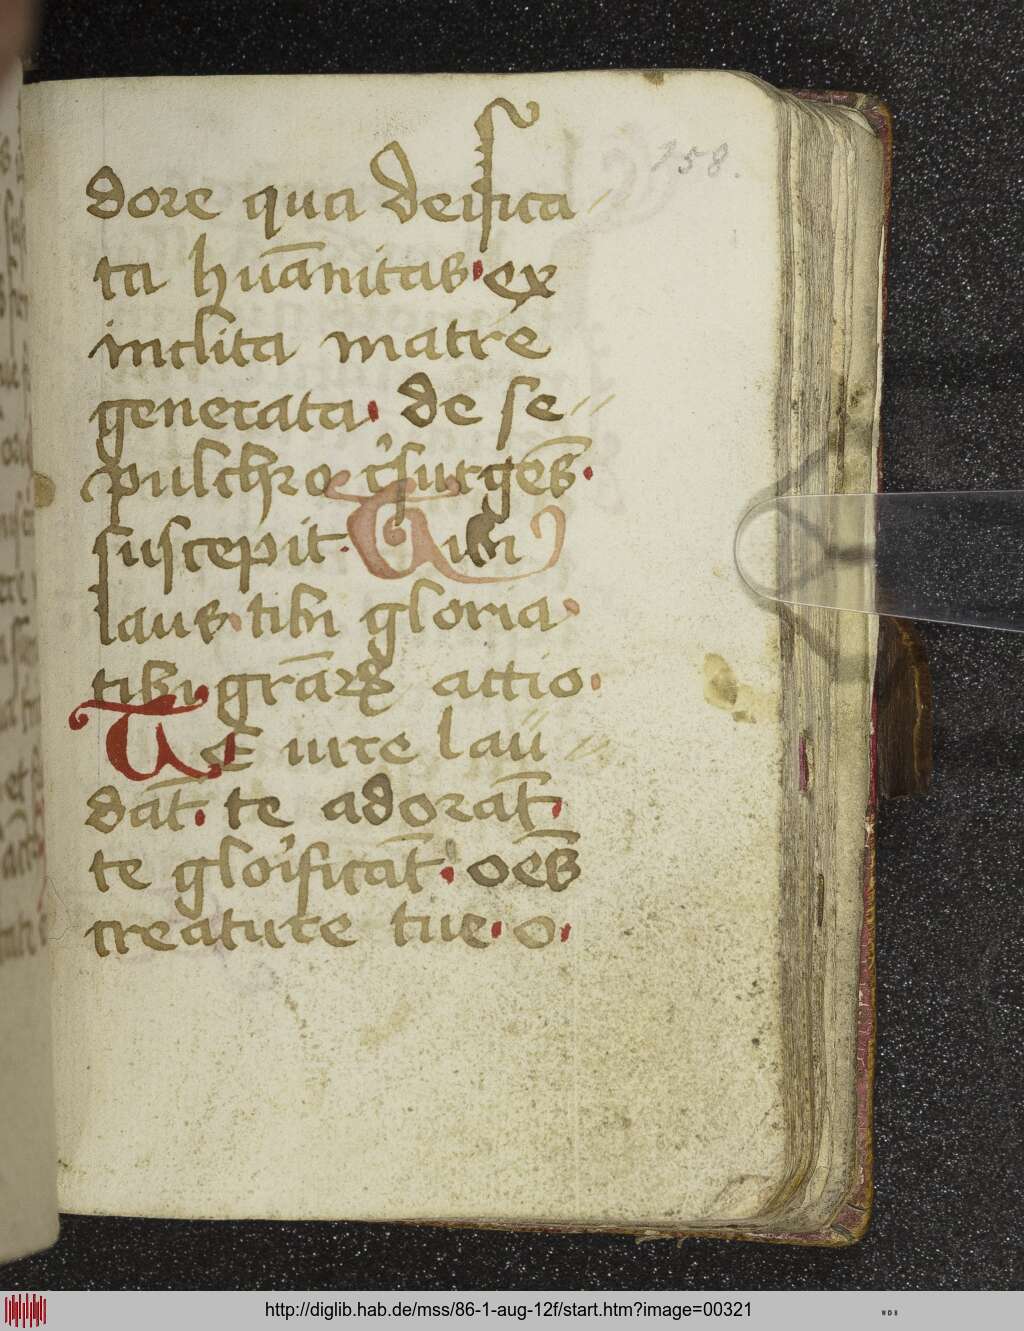 158.
dore qua deifica
ta hūanitas ex
inclita matre
generata de se
pulchro surgēs.
suscepit. Tibi
laus tibi gloria
tibi grāꝝ actio
Te iure laū
dāt. te adorāt.
te glorificāt. oēs
creature tue. o.
http://diglib.hab.de/mss/86-1-aug-12f/start.htm?image=00321